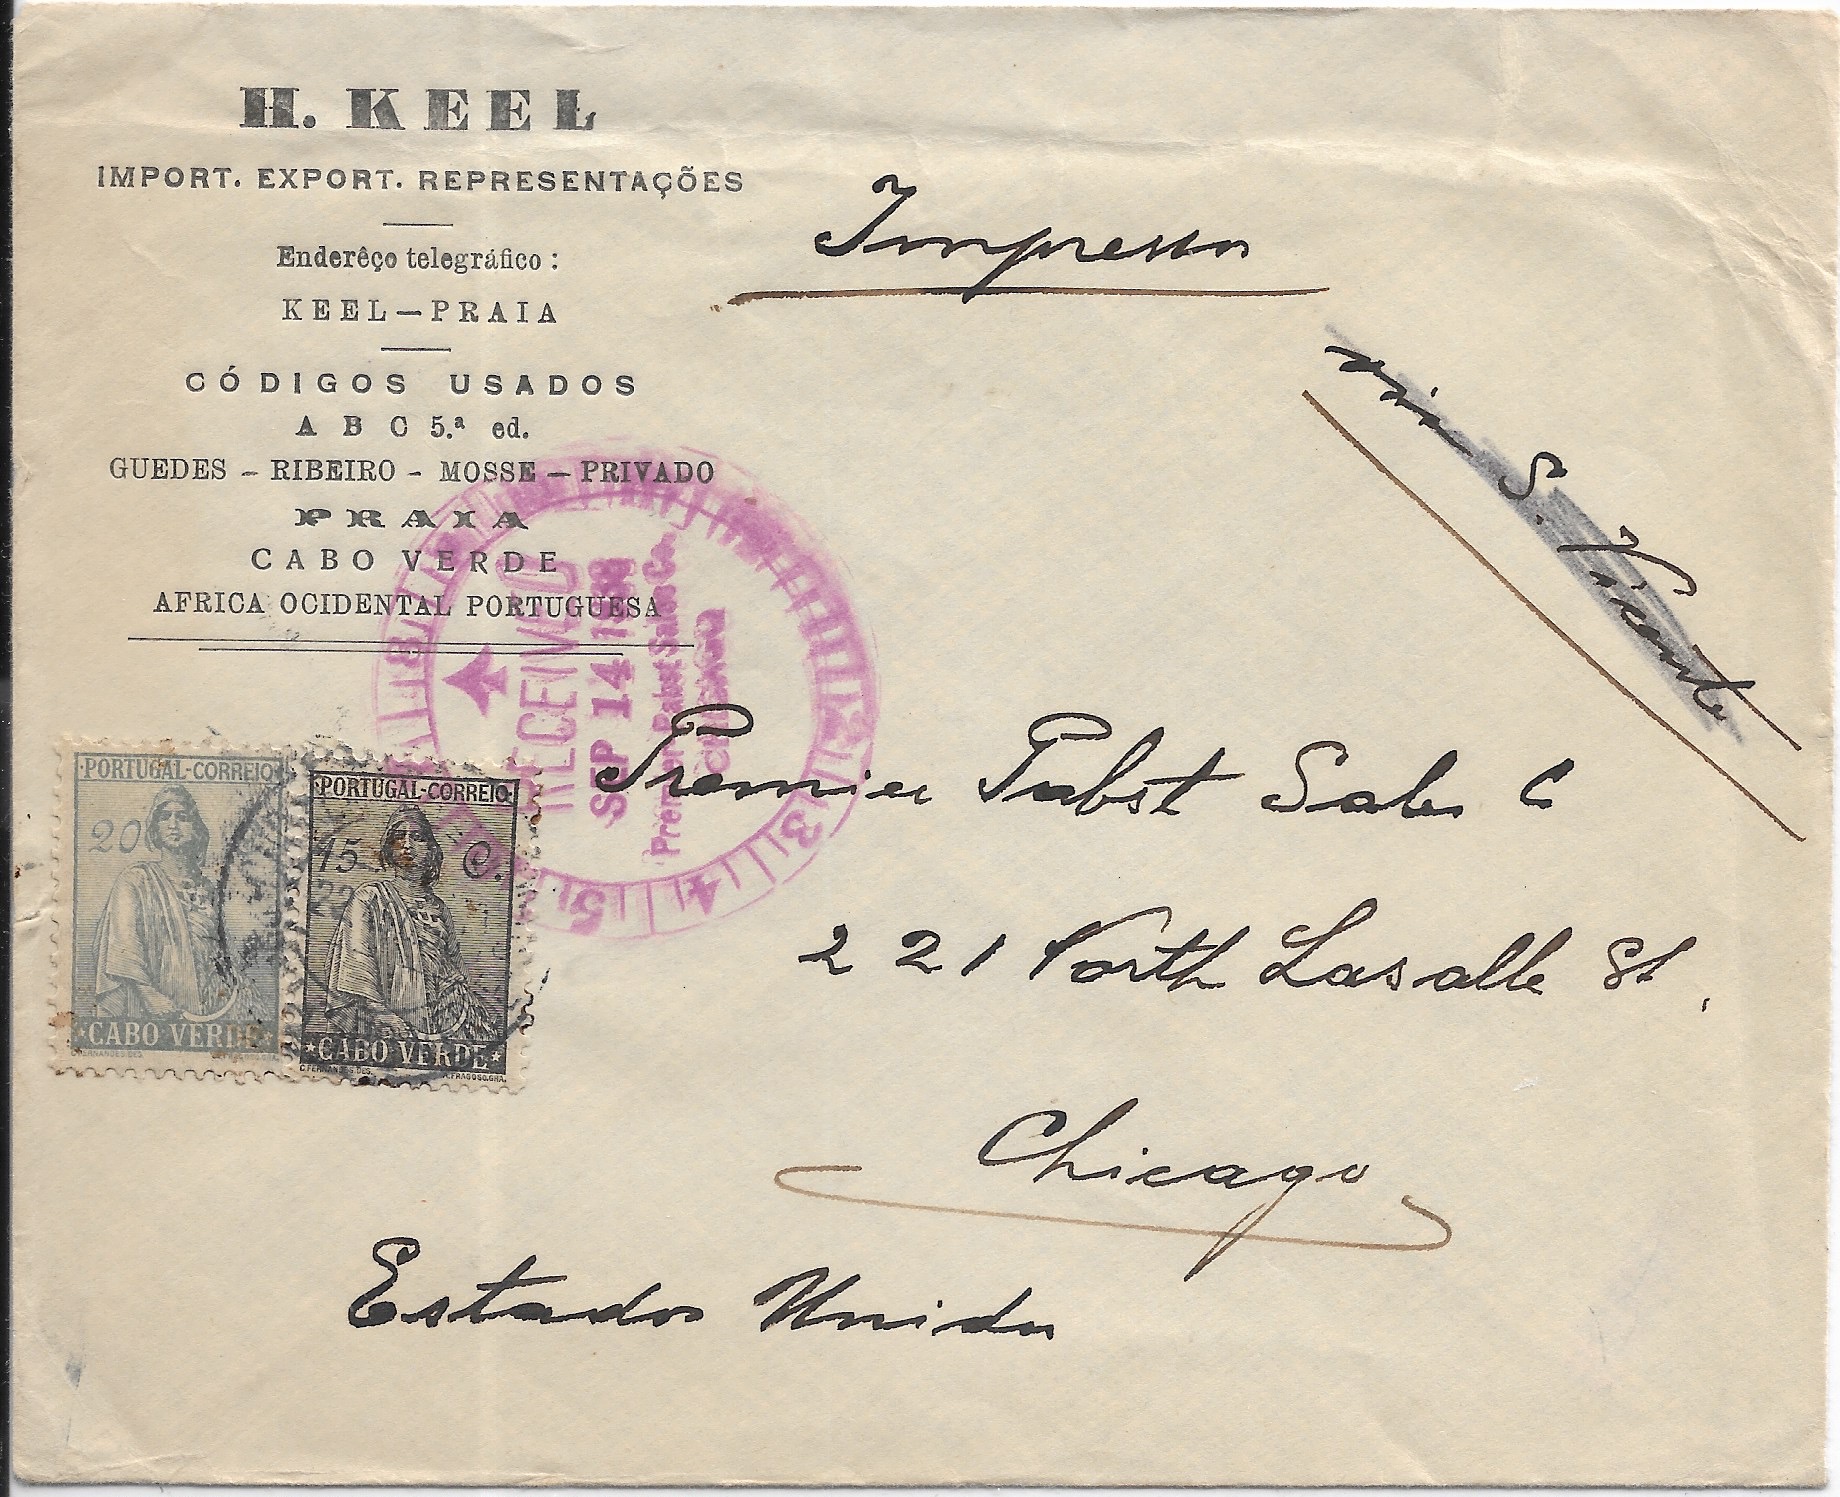 H. KEEL
IMPORT. EXPORT. REPRESENTAÇÕES
Enderêço telegráfico :
KEEL—PRAIA
CÓDIGOS USADOS
A B C 5.ª ed.
GUEDES - RIBEIRO - MOSSE — PRIVADO
PRAIA
CABO VERDE
AFRICA OCIDENTAL PORTUGUESA
Impressos
via S. Vicente
RECEIVED
SEP 14 193
Premier-Pabst Sales Co.
CHICAGO
8
3
4
5
PORTUGAL-CORREIO
20
CABO VERDE
PORTUGAL-CORREIO
15 C.
22
CABO VERDE
C. FERNANDES DES.
A. FRAGOSO. GRA.
Premier Pabst Sales Co
221 North Lasalle St,
Chicago
Estados Unidos